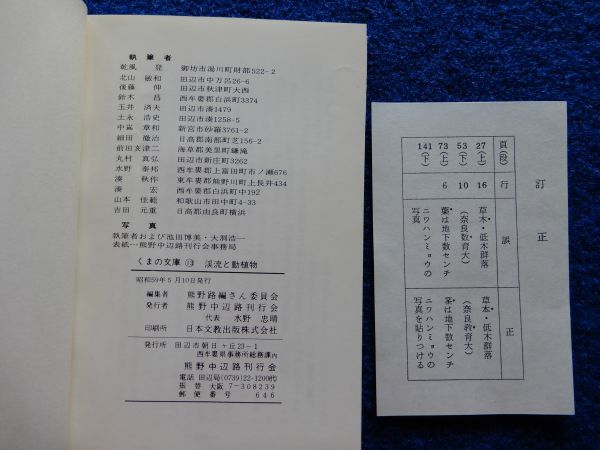 執筆者
乾風 登 御坊市湯川町財部522-2
北山 敏和 田辺市中万呂26-6
後藤 伸 田辺市秋津町大西
鈴木 昌 西牟婁郡白浜町3374
玉井 済夫 田辺市湊1479
土永 浩史 田辺市湊1258-5
中嶌 章和 新宮市砂羅3761-2
細田 徹治 日高郡南部町芝156-2
前田亥津二 海草郡美里町鎌滝
丸村 真弘 田辺市新庄町3262
水野 泰邦 西牟婁郡上富田町市ノ瀬676
湊 秋作 東牟婁郡熊野川町上長井434
湊 宏 西牟婁郡白浜町中192
山本 佳範 和歌山市田中町4-33
吉田 元重 日高郡由良町横浜
写真
執筆者および池田博美・大洞浩一
表紙…熊野中辺路刊行会事務局
くまの文庫⑬ 渓流と動植物
昭和59年5月10日発行
編集者 熊野路編さん委員会
発行者 熊野中辺路刊行会
代表 水野 忠晴
印刷所 日本文教出版株式会社
発行所 田辺市朝日ヶ丘23-1
西牟婁県事務所総務課内
熊野中辺路刊行会
電話 田辺局(0739)22-1200代)
振替 大阪 7-308239
郵便番号 646
訂正
頁(段) 行 誤 正
27(上) 16 草木・低木群落 草本・低木群落
53(下) 10 (奈良数育大) (奈良教育大)
73(上) 6 葉は地下数センチ 茎は地下数センチ
141(下) ニワハンミョウの写真 ニワハンミョウの写真を貼りつける